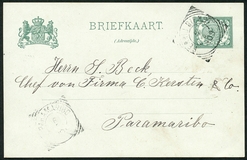 BRIEFKAART.
(Adreszijde.)
Herrn S. Beck
Chef von Firma C. Kersten & Co.
Paramaribo